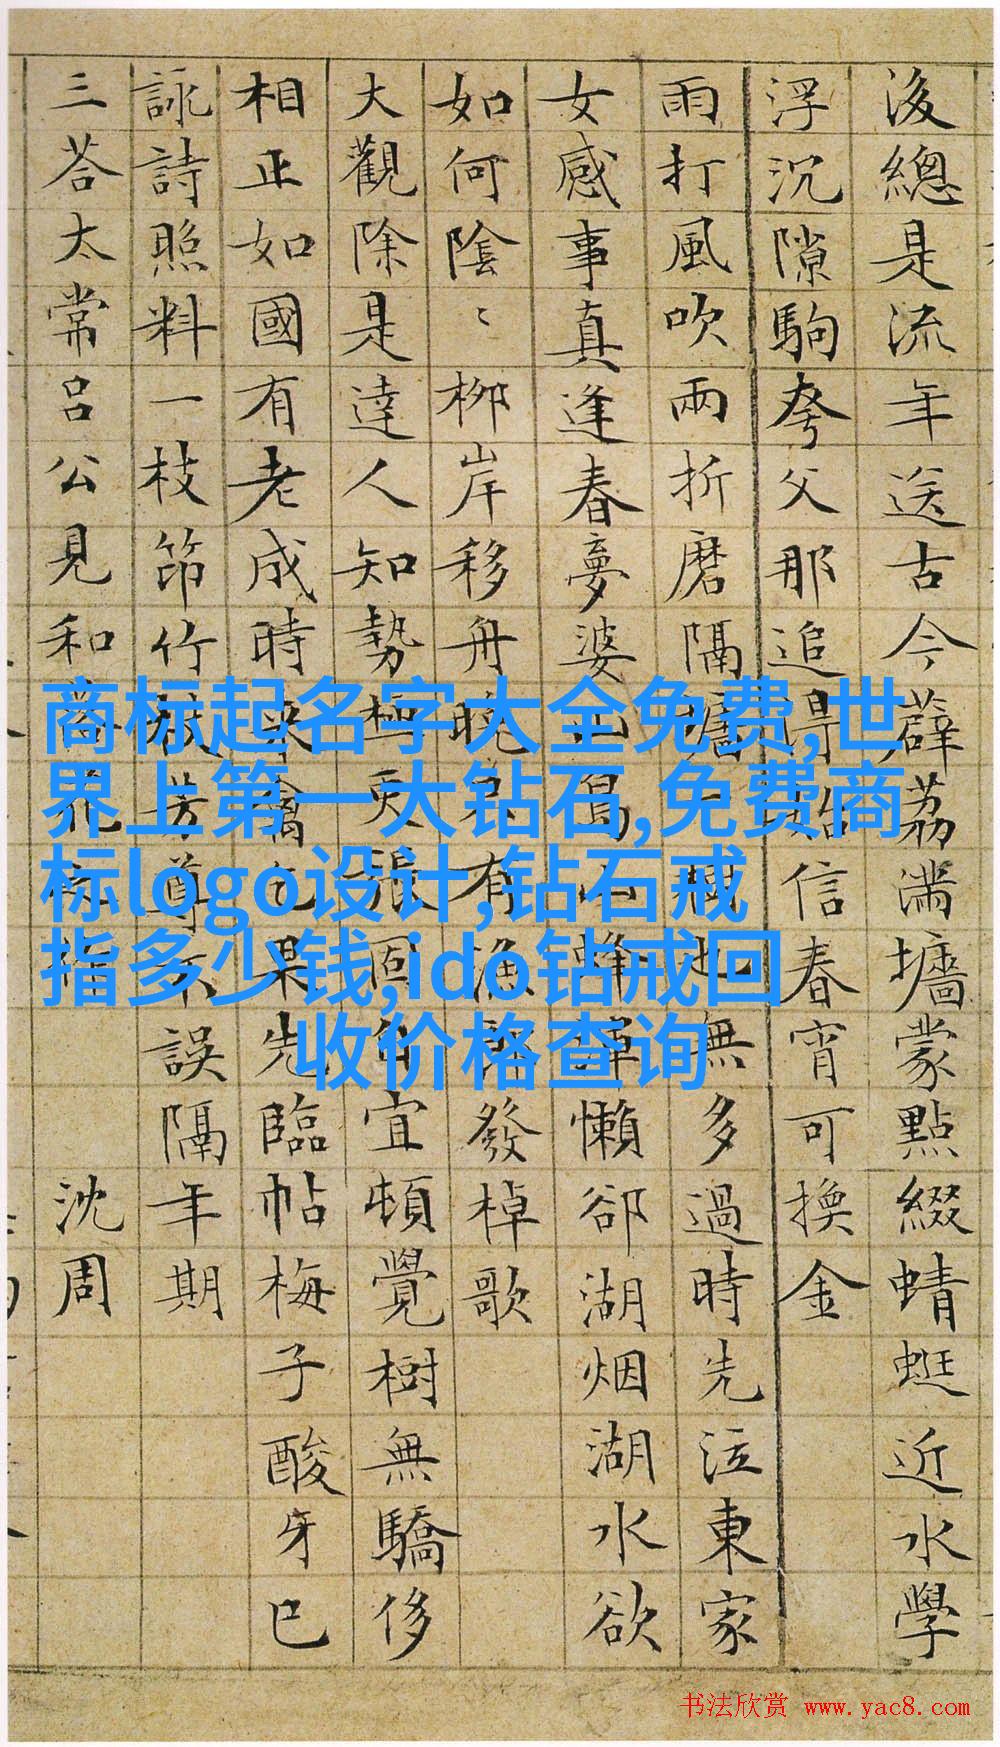 後總是流年送古今薜荔滿墻蒙點綴蜻蜓近水學
浮沉隙駒夸父那追得始信春宵可換金
雨打風吹兩折磨隔墻也無多過時先泣東家
女感事真逢春夢婆蜂懶卻湖烟湖水欲
如何陰〻柳岸移舟晚只有漁郎發棹歌
大觀除是達人知勢極更張固自宜頓覺樹無驕侈
相正如國有老成時來禽已果先臨帖梅子酸牙已
詠詩照料一枝笻竹杖芳尊不誤隔年期
三荅太常呂公見和落花之作
沈周
商标起名字大全免费,世
界上第一大钻石,免费商
标logo设计,钻石戒
指多少钱,ido钻戒回
收价格查询
书法欣赏 www.yac8.com